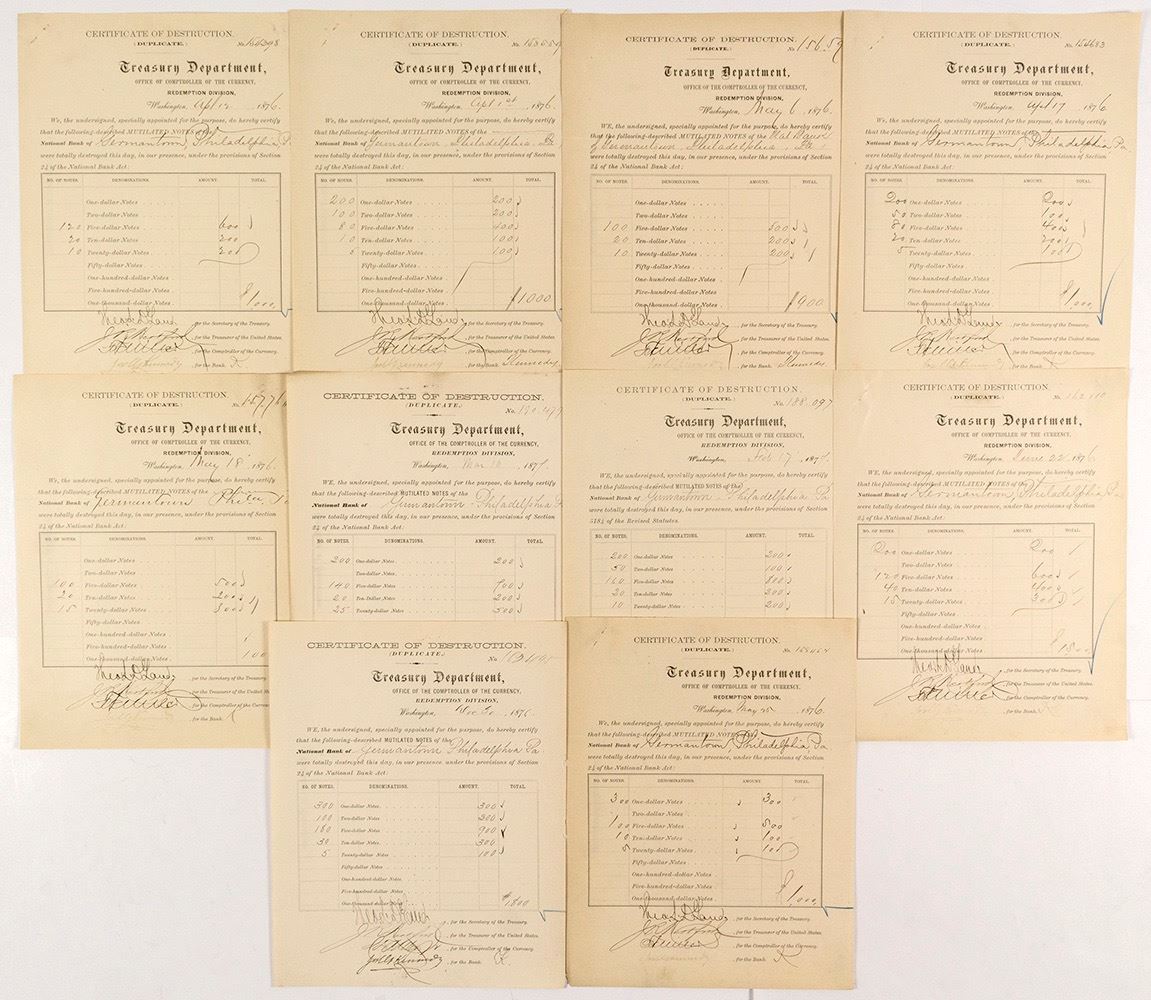 CERTIFICATE OF DESTRUCTION.
(DUPLICATE.)
No. 154398
Treasury Department,
OFFICE OF COMPTROLLER OF THE CURRENCY,
REDEMPTION DIVISION,
Washington, Apl 12, 1876.
We, the undersigned, specially appointed for the purpose, do hereby certify
that the following-described MUTILATED NOTES of the
National Bank of Germantown, Philadelphia Pa
were totally destroyed this day, in our presence, under the provisions of Section
24 of the National Bank Act:
NO. OF NOTES. DENOMINATIONS. AMOUNT. TOTAL.
One-dollar Notes
Two-dollar Notes
120 Five-dollar Notes 600
20 Ten-dollar Notes 200
10 Twenty-dollar Notes 200
Fifty-dollar Notes
One-hundred-dollar Notes
Five-hundred-dollar Notes
One-thousand-dollar Notes $1000
, for the Secretary of the Treasury.
, for the Treasurer of the United States.
, for the Comptroller of the Currency.
, for the Bank. K
CERTIFICATE OF DESTRUCTION.
(DUPLICATE.)
No.
Treasury Department,
OFFICE OF COMPTROLLER OF THE CURRENCY,
REDEMPTION DIVISION,
Washington, Apl 1st, 1876.
We, the undersigned, specially appointed for the purpose, do hereby certify
that the following-described MUTILATED NOTES of the
National Bank of Germantown, Philadelphia, Pa
were totally destroyed this day, in our presence, under the provisions of Section
24 of the National Bank Act:
NO. OF NOTES. DENOMINATIONS. AMOUNT. TOTAL.
200 One-dollar Notes 200
100 Two-dollar Notes 200
80 Five-dollar Notes 400
10 Ten-dollar Notes 100
5 Twenty-dollar Notes 100
Fifty-dollar Notes
One-hundred-dollar Notes
Five-hundred-dollar Notes
One-thousand-dollar Notes $1000
, for the Secretary of the Treasury.
, for the Treasurer of the United States.
, for the Comptroller of the Currency.
, for the Bank. Kennedy
CERTIFICATE OF DESTRUCTION.
(DUPLICATE.)
No. 15659
Treasury Department,
OFFICE OF COMPTROLLER OF THE CURRENCY,
REDEMPTION DIVISION,
Washington, May 6, 1876.
We, the undersigned, specially appointed for the purpose, do hereby certify
that the following-described MUTILATED NOTES of the Nat Bank
of Germantown, Philadelphia, Pa
were totally destroyed this day, in our presence, under the provisions of Section
24 of the National Bank Act:
NO. OF NOTES. DENOMINATIONS. AMOUNT. TOTAL.
One-dollar Notes
Two-dollar Notes
100 Five-dollar Notes 500
20 Ten-dollar Notes 200
10 Twenty-dollar Notes 200
Fifty-dollar Notes
One-hundred-dollar Notes
Five-hundred-dollar Notes
One-thousand-dollar Notes $900
, for the Secretary of the Treasury.
, for the Treasurer of the United States.
, for the Comptroller of the Currency.
, for the Bank. Kennedy
CERTIFICATE OF DESTRUCTION.
(DUPLICATE.)
No. 154683
Treasury Department,
OFFICE OF COMPTROLLER OF THE CURRENCY,
REDEMPTION DIVISION,
Washington, Apl 17, 1876
We, the undersigned, specially appointed for the purpose, do hereby certify
that the following-described MUTILATED NOTES of the
National Bank of Germantown, Philadelphia Pa
were totally destroyed this day, in our presence, under the provisions of Section
24 of the National Bank Act:
NO. OF NOTES. DENOMINATIONS. AMOUNT. TOTAL.
200 One-dollar Notes 200
50 Two-dollar Notes 100
80 Five-dollar Notes 400
20 Ten-dollar Notes 200
5 Twenty-dollar Notes 100
Fifty-dollar Notes
One-hundred-dollar Notes
Five-hundred-dollar Notes
One-thousand-dollar Notes $1000
, for the Secretary of the Treasury.
, for the Treasurer of the United States.
, for the Comptroller of the Currency.
, for the Bank. K
CERTIFICATE OF DESTRUCTION.
(DUPLICATE.)
No.
Treasury Department,
OFFICE OF COMPTROLLER OF THE CURRENCY,
REDEMPTION DIVISION,
Washington, May 18, 1876.
We, the undersigned, specially appointed for the purpose, do hereby certify
that the following-described MUTILATED NOTES of the
National Bank of Germantown
were totally destroyed this day, in our presence, under the provisions of Section
24 of the National Bank Act:
NO. OF NOTES. DENOMINATIONS. AMOUNT. TOTAL.
One-dollar Notes
Two-dollar Notes
100 Five-dollar Notes 500
20 Ten-dollar Notes 200
15 Twenty-dollar Notes 300
Fifty-dollar Notes
One-hundred-dollar Notes
Five-hundred-dollar Notes
One-thousand-dollar Notes 100
, for the Secretary of the Treasury.
, for the Treasurer of the United States
, for the Comptroller of the Currency
, for the Bank. K
CERTIFICATE OF DESTRUCTION.
(DUPLICATE.)
No.
Treasury Department,
OFFICE OF THE COMPTROLLER OF THE CURRENCY,
REDEMPTION DIVISION,
Washington, Mar
WE, the undersigned, specially appointed for the purpose, do hereby certify
that the following-described MUTILATED NOTES of the
National Bank of Germantown Philadelphia
were totally destroyed this day, in our presence, under the provisions of Section
24 of the National Bank Act:
NO. OF NOTES. DENOMINATIONS. AMOUNT. TOTAL.
200 One-dollar Notes 200
Two-dollar Notes
140 Five-dollar Notes 700
20 Ten-Dollar Notes 200
25 Twenty-dollar Notes 500
CERTIFICATE OF DESTRUCTION.
(DUPLICATE.)
No. 188,097
Treasury Department,
OFFICE OF THE COMPTROLLER OF THE CURRENCY,
REDEMPTION DIVISION,
Washington, Feb 17
WE, the undersigned, specially appointed for the purpose, do hereby certify
that the following-described MUTILATED NOTES of the
National Bank of Germantown Philadelphia Pa
were totally destroyed this day, in our presence, under the provisions of Section
5184 of the Revised Statutes.
NO. OF NOTES. DENOMINATIONS. AMOUNT. TOTAL.
200 One-dollar Notes 200
50 Two-dollar Notes 100
160 Five-dollar Notes 800
20 Ten-dollar Notes 200
10 Twenty-dollar Notes 200
CERTIFICATE OF DESTRUCTION.
(DUPLICATE.)
No. 162110
Treasury Department,
OFFICE OF COMPTROLLER OF THE CURRENCY,
REDEMPTION DIVISION,
Washington, June 22, 1876
We, the undersigned, specially appointed for the purpose, do hereby certify
that the following-described MUTILATED NOTES of the
National Bank of Germantown, Philadelphia, Pa
were totally destroyed this day, in our presence, under the provisions of Section
24 of the National Bank Act:
NO. OF NOTES. DENOMINATIONS. AMOUNT. TOTAL.
200 One-dollar Notes 200
Two-dollar Notes
120 Five-dollar Notes 600
40 Ten-dollar Notes 400
15 Twenty-dollar Notes 300
Fifty-dollar Notes
One-hundred-dollar Notes
Five-hundred-dollar Notes
One-thousand-dollar Notes $1500
, for the Secretary of the Treasury.
, for the Treasurer of the United States.
, for the Comptroller of the Currency.
, for the Bank.
CERTIFICATE OF DESTRUCTION.
(DUPLICATE.)
No.
Treasury Department,
OFFICE OF THE COMPTROLLER OF THE CURRENCY,
REDEMPTION DIVISION,
Washington, Nov
WE, the undersigned, specially appointed for the purpose, do hereby certify
that the following-described MUTILATED NOTES of the
National Bank of Germantown Philadelphia Pa
were totally destroyed this day, in our presence, under the provisions of Section
24 of the National Bank Act:
NO. OF NOTES. DENOMINATIONS. AMOUNT. TOTAL.
300 One-dollar Notes 300
100 Two-dollar Notes
180 Five-dollar Notes 900
30 Ten-dollar Notes 300
5 Twenty-dollar Notes 100
Fifty-dollar Notes
One-hundred-dollar Notes
Five-hundred-dollar Notes
One-thousand-dollar Notes $1800
, for the Secretary of the Treasury.
, for the Treasurer of the United States.
, for the Comptroller of the Currency.
Kennedy, for the Bank. K
CERTIFICATE OF DESTRUCTION.
(DUPLICATE.)
No.
Treasury Department,
OFFICE OF COMPTROLLER OF THE CURRENCY,
REDEMPTION DIVISION,
Washington, May 25, 1876.
We, the undersigned, specially appointed for the purpose, do hereby certify
that the following-described MUTILATED NOTES of the
National Bank of Germantown, Philadelphia, Pa
were totally destroyed this day, in our presence, under the provisions of Section
24 of the National Bank Act:
NO. OF NOTES. DENOMINATIONS. AMOUNT. TOTAL.
300 One-dollar Notes 300
Two-dollar Notes
100 Five-dollar Notes 500
10 Ten-dollar Notes 100
5 Twenty-dollar Notes 100
Fifty-dollar Notes
One-hundred-dollar Notes
Five-hundred-dollar Notes
One-thousand-dollar Notes $1000
, for the Secretary of the Treasury.
, for the Treasurer of the United States.
, for the Comptroller of the Currency.
, for the Bank. K